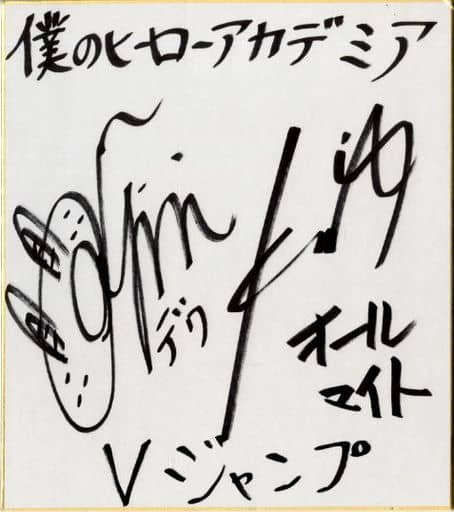 僕のヒーローアカデミア
デク
オール
マイト
Vジャンプ